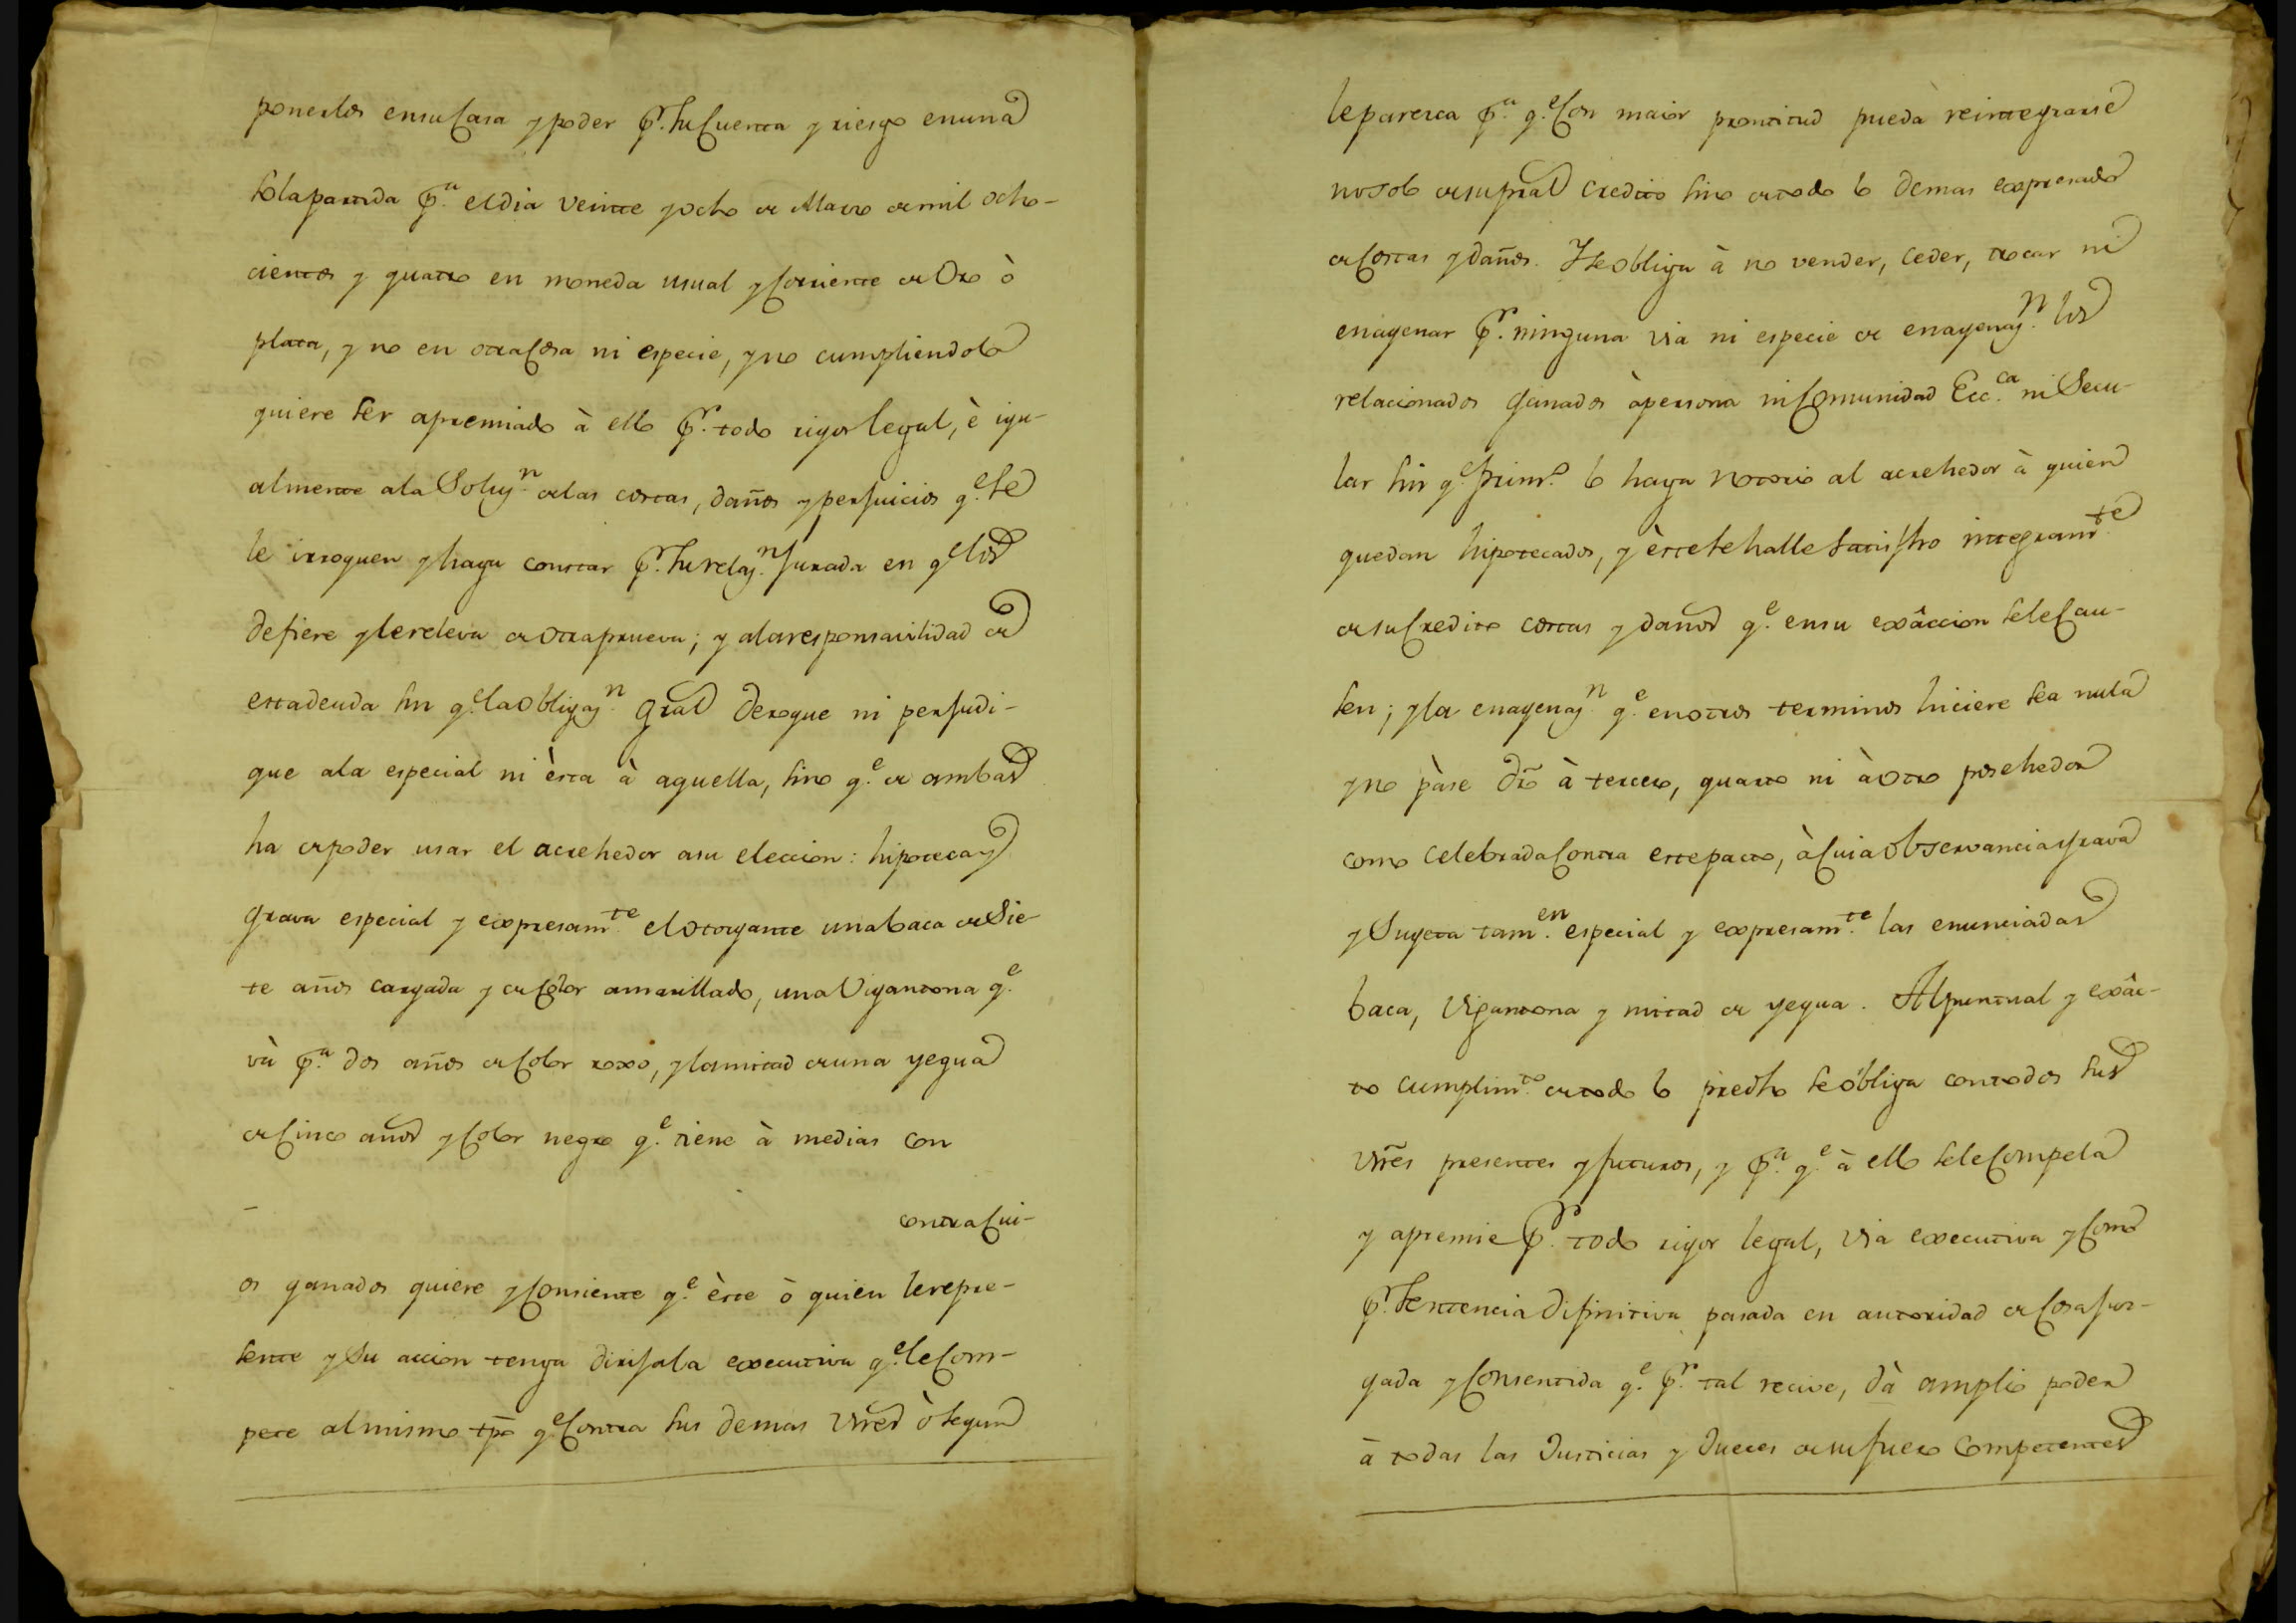 ponerlos en su Casa y poder pr. su Cuenta y riesgo en una
sola partida pa. el dia veinte y ocho de Marzo de mil ocho-
cientos y quatro en moneda usual y Corriente de Oro ò
plata, y no en otra Cosa ni especie, y no cumpliendolo
quiere ser apremiado à ello pr. todo rigor legal, è igu-
almente a la Soluzn. de las costas, daños y perjuicios qe. se
le irroguen y haga constar pr. su relazn. jurada en qe. los
defiere y le releva de otra prueva; y a la responsavilidad de
esta deuda sin qe. la Obligazn. Gral derogue ni perjudi-
que a la especial ni èsta à aquella, sino qe. de ambas
ha de poder usar el acrehedor a su eleccion: hipoteca y
grava especial y expresamte. el otorgante una baca de Sie-
te años cargada y de Color amarillado, una Vigantona qe.
và pa. dos años de Color roxo, y la mitad de una yegua
de Cinco años y Color negro qe. tiene à medias con
contra Cui-
os ganados quiere y Consiente qe. èste ò quien le repre-
sente y Su accion tenga dirija la executiva qe. le Com-
pete al mismo tpo qe. Contra sus demas vnes ò segun
le paresca pa. qe. Con maior prontitud pueda reintegrarse
no solo de su pral credito sino de todo lo demas expresado
de Costas y daños. Y se obliga à no vender, ceder, trocar ni
enagenar pr. ninguna via ni especie de enagenazn. los
relacionados Ganados à persona ni Comunidad Ecca. ni Secu-
lar sin qe. primo. lo haga notorio al acrehedor à quien
quedan hipotecados, y èste se halle satisfho integramte.
de su Credito costas y daños qe. en su exâccion se le Cau-
sen; y la enagenazn. qe. en otros terminos hiciere sea nula
y no pàse dro à tercero, quarto ni à otro posehedor
como celebrada Contra este pacto, à Cuia observancia grava
y Sugeta tamen. especial y expresamte. las enunciadas
baca, Vigantona y mitad de yegua. Al puntual y exâc-
to cumplimto. de todo lo predho se obliga con todos sus
vnes presentes y futuros, y pa. qe. à ello se le Compela
y apremie pr. todo rigor legal, via executiva y Como
pr. Sentencia difinitiva pasada en autoridad de Cosa juz-
gada y Consentida qe. pr. tal recive, dà amplio poder
à todas las Justicias y Jueces de su fuero Competentes